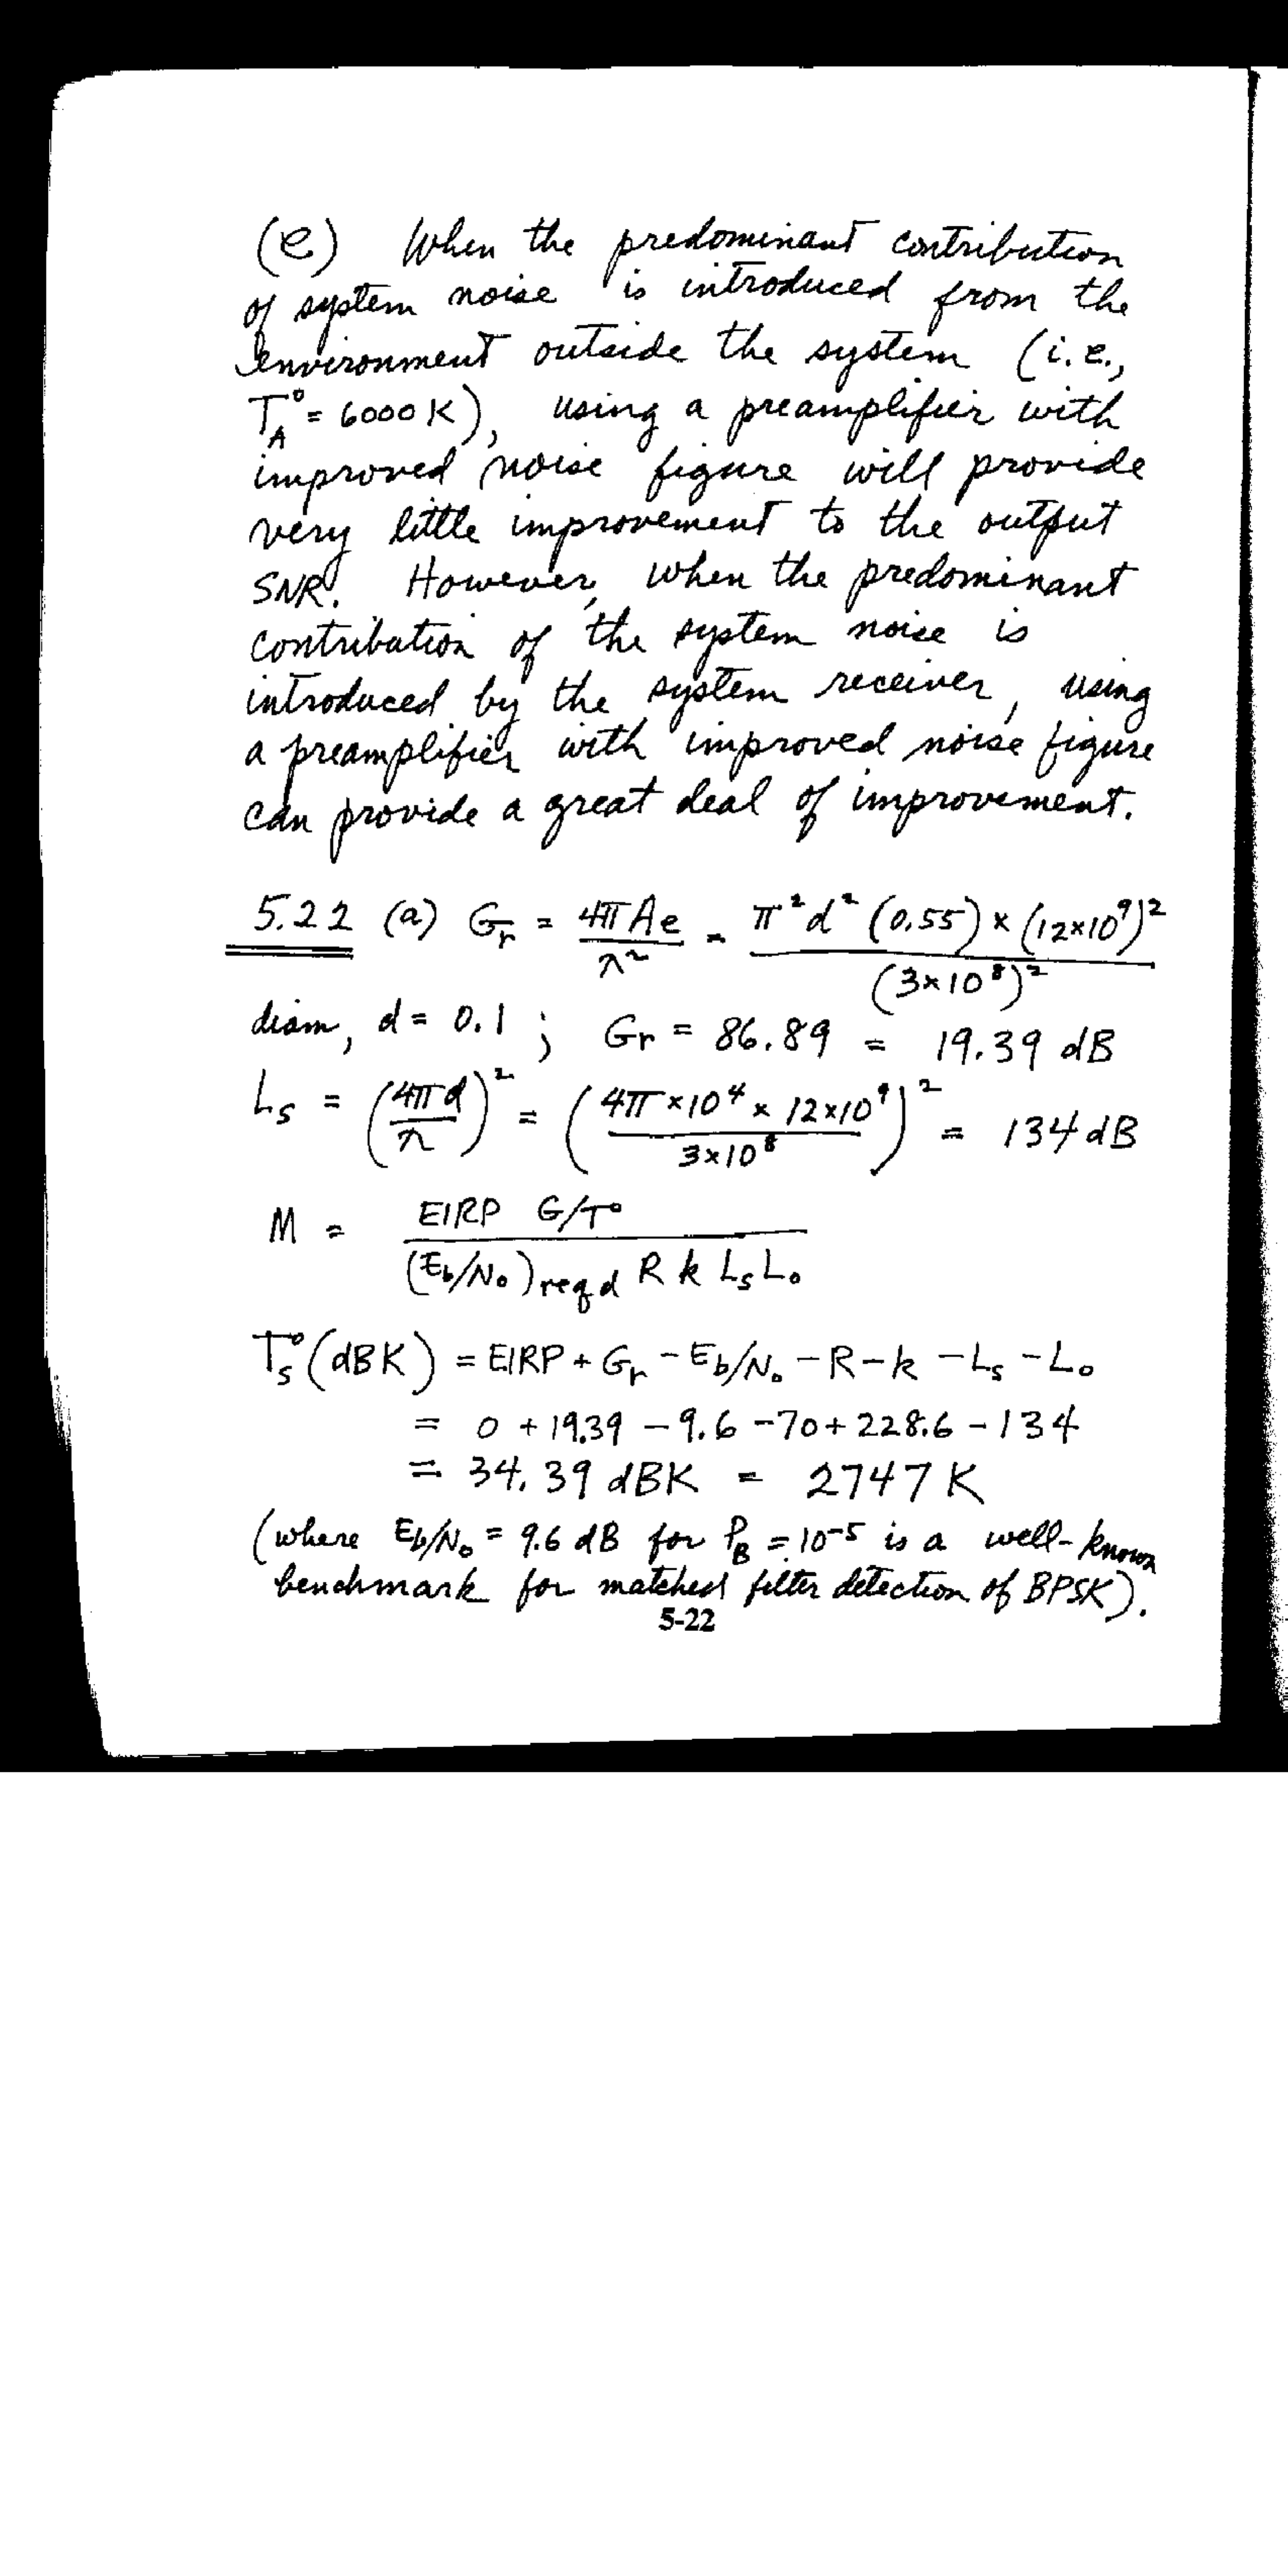 (e) When the predominant contribution
of system noise is introduced from the
environment outside the system (i.e.,
T°A = 6000 K), using a preamplifier with
improved noise figure will provide
very little improvement to the output
SNR. However, when the predominant
contribution of the system noise is
introduced by the system receiver, using
a preamplifier with improved noise figure
can provide a great deal of improvement.
5.22 (a) Gr = 4πAe/λ² = π²d²(0.55)×(12×10⁹)²/(3×10⁸)²
diam, d = 0.1 ; Gr = 86.89 = 19.39 dB
Ls = (4πd/λ)² = (4π×10⁴×12×10⁹/3×10⁸)² = 134 dB
M = EIRP G/T°/(Eb/N₀)reqd R k Ls L₀
T°s (dBK) = EIRP + Gr − Eb/N₀ − R − k − Ls − L₀
= 0 + 19.39 − 9.6 − 70 + 228.6 − 134
= 34.39 dBK = 2747 K
(where Eb/N₀ = 9.6 dB for PB = 10⁻⁵ is a well-known
benchmark for matched filter detection of BPSK).
5-22